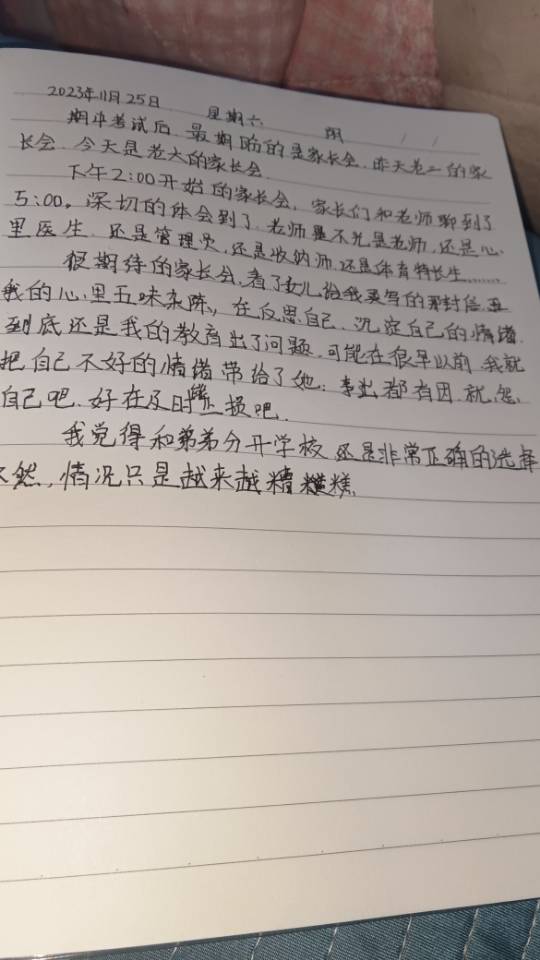 2023年11月25日 星期六 阴
期中考试后 最期盼的是家长会 昨天老二的家
长会 今天是老大的家长会
下午2:00开始的家长会，家长们和老师聊到了
5:00。深切的体会到了 老师是不光是老师，还是心
里医生，还是管理员，还是收纳师，还是体育特长生……
很期待的家长会，看了女儿给我要写的那封信
我的心里五味杂陈，在反思自己 沉淀自己的情绪
到底还是我的教育出了问题 可能在很早以前 我就
把自己不好的情绪带给了她：事出都有因 就怨
自己吧 好在及时止损吧
我觉得和弟弟分开学校 还是非常正确的选择
不然，情况只是越来越糟糕